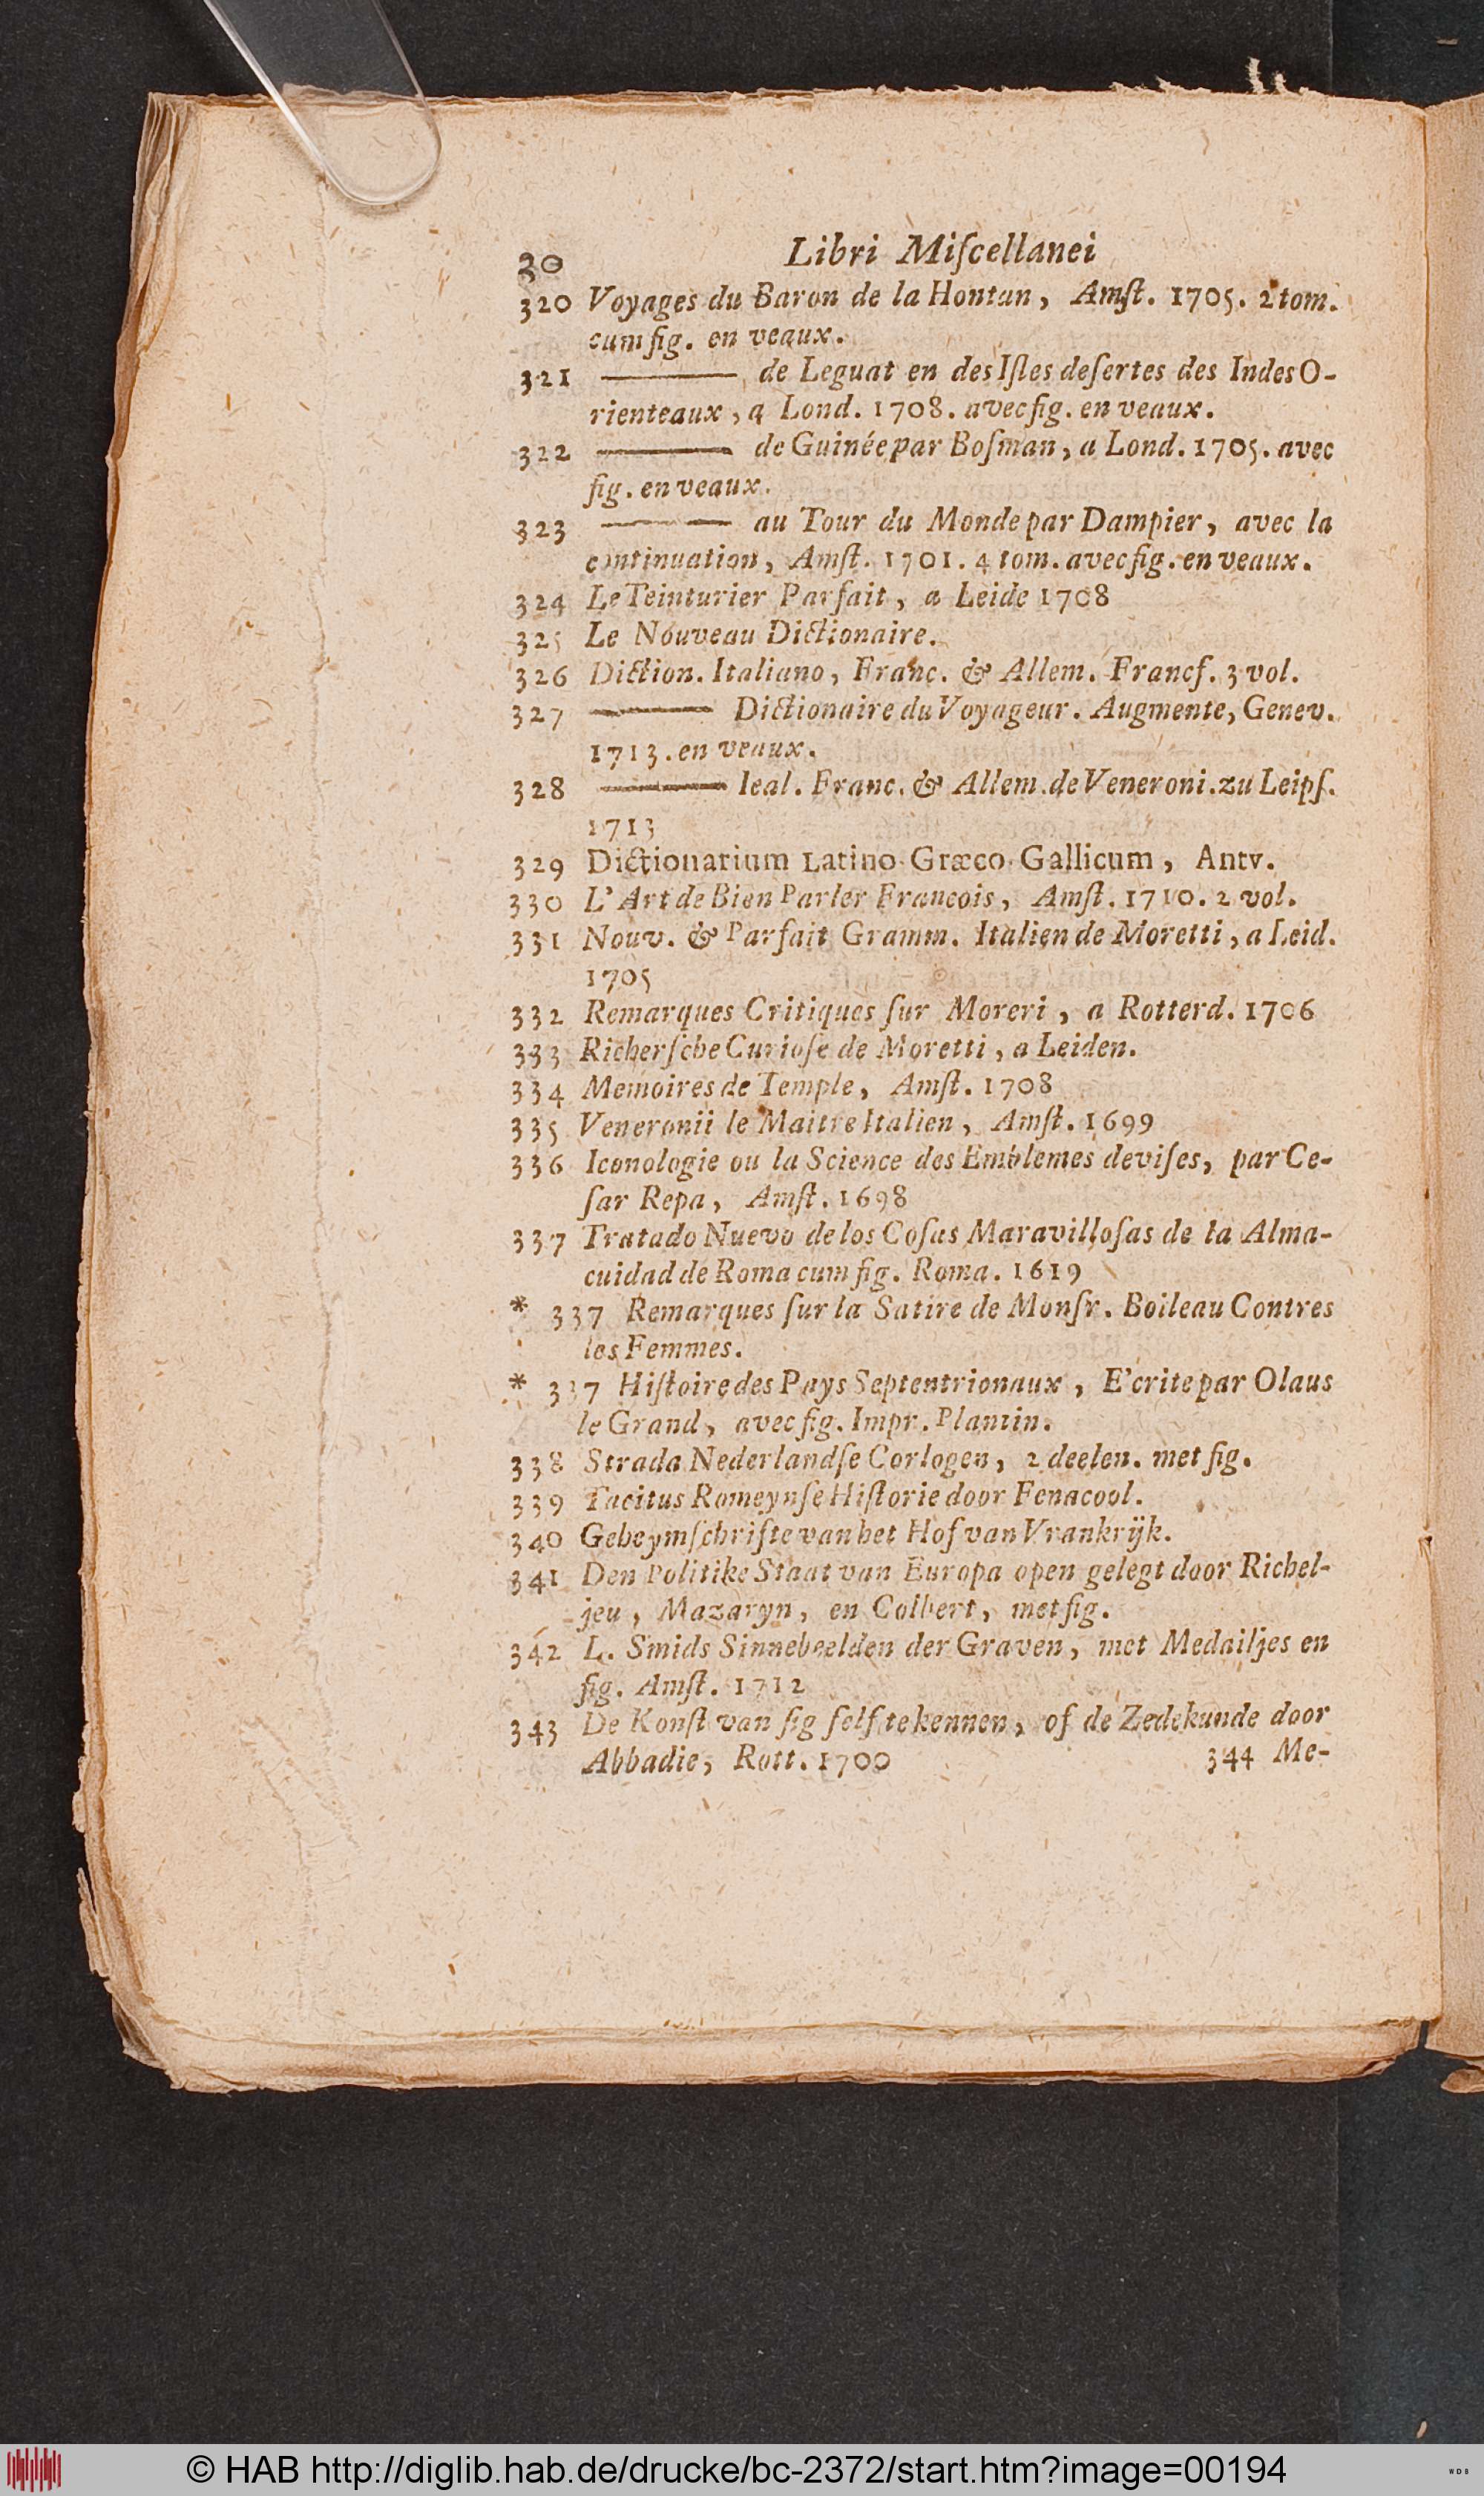 30 Libri Miſcellanei
320 Voyages du Baron de la Hontan, Amſt. 1705. 2 tom.
cum fig. en veaux.
321 ——— de Leguat en des Iſles deſertes des Indes O-
rienteaux, a Lond. 1708. avec fig. en veaux.
322 ——— de Guinée par Boſman, a Lond. 1705. avec
fig. en veaux.
323 ——— au Tour du Monde par Dampier, avec la
continuation, Amſt. 1701. 4 tom. avec fig. en veaux.
324 Le Teinturier Parfait, a Leide 1708
325 Le Nouveau Dictionaire.
326 Diction. Italiano, Franc. & Allem. Francf. 3 vol.
327 ——— Dictionaire du Voyageur. Augmente, Genev.
1713. en veaux.
328 ——— Ieal. Franc. & Allem. de Veneroni. zu Leipſ.
1713
329 Dictionarium Latino-Græco-Gallicum, Antv.
330 L'Art de Bien Parler Francois, Amſt. 1710. 2 vol.
331 Nouv. & Parfait Gramm. Italien de Moretti, a Leid.
1705
332 Remarques Critiques ſur Moreri, a Rotterd. 1706
333 Richerſche Curioſe de Moretti, a Leiden.
334 Memoires de Temple, Amſt. 1708
335 Veneronii le Maitre Italien, Amſt. 1699
336 Iconologie ou la Science des Emblemes deviſes, par Ce-
ſar Repa, Amſt. 1698
337 Tratado Nuevo de los Coſas Maravilloſas de la Alma-
cuidad de Roma cum fig. Roma. 1619
* 337 Remarques ſur la Satire de Monſr. Boileau Contres
les Femmes.
* 337 Hiſtoire des Pays Septentrionaux, E'crite par Olaus
le Grand, avec fig. Impr. Plantin.
338 Strada Nederlandſe Corlogen, 2 deelen. met fig.
339 Tacitus Romeynſe Hiſtorie door Fenacool.
340 Geheymſchrifte van het Hof van Vrankrijk.
341 Den Politike Staat van Europa open gelegt door Richel-
jeu, Mazaryn, en Colbert, met fig.
342 L. Smids Sinnebeelden der Graven, met Medailjes en
fig. Amſt. 1712
343 De Konſt van ſig ſelf te kennen, of de Zedekunde door
Abbadie, Rott. 1700 344 Me-
© HAB http://diglib.hab.de/drucke/bc-2372/start.htm?image=00194
WDB